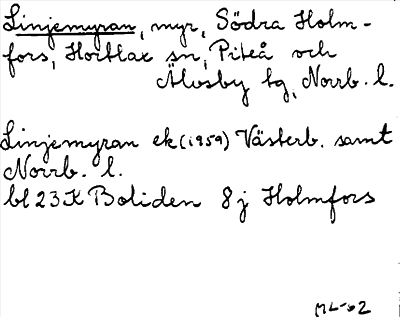 Linjemyran, myr, Södra Holm-
fors, Hortlax sn, Piteå och
Älvsby tg, Norrb. l.
Linjemyran ek (1959) Västerb. samt
Norrb. l.
bl 23 K Boliden 8 j Holmfors
ML-62